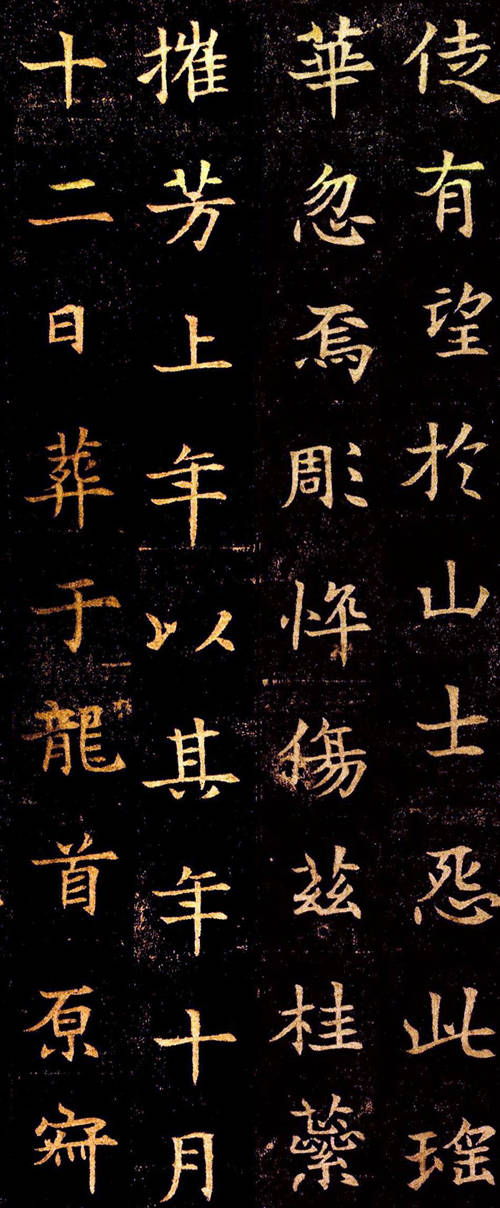 徒有望於山士怨此瑤
華忽焉彫悴傷茲桂蘂
摧芳上年以其年十月
十二日葬于龍首原寂